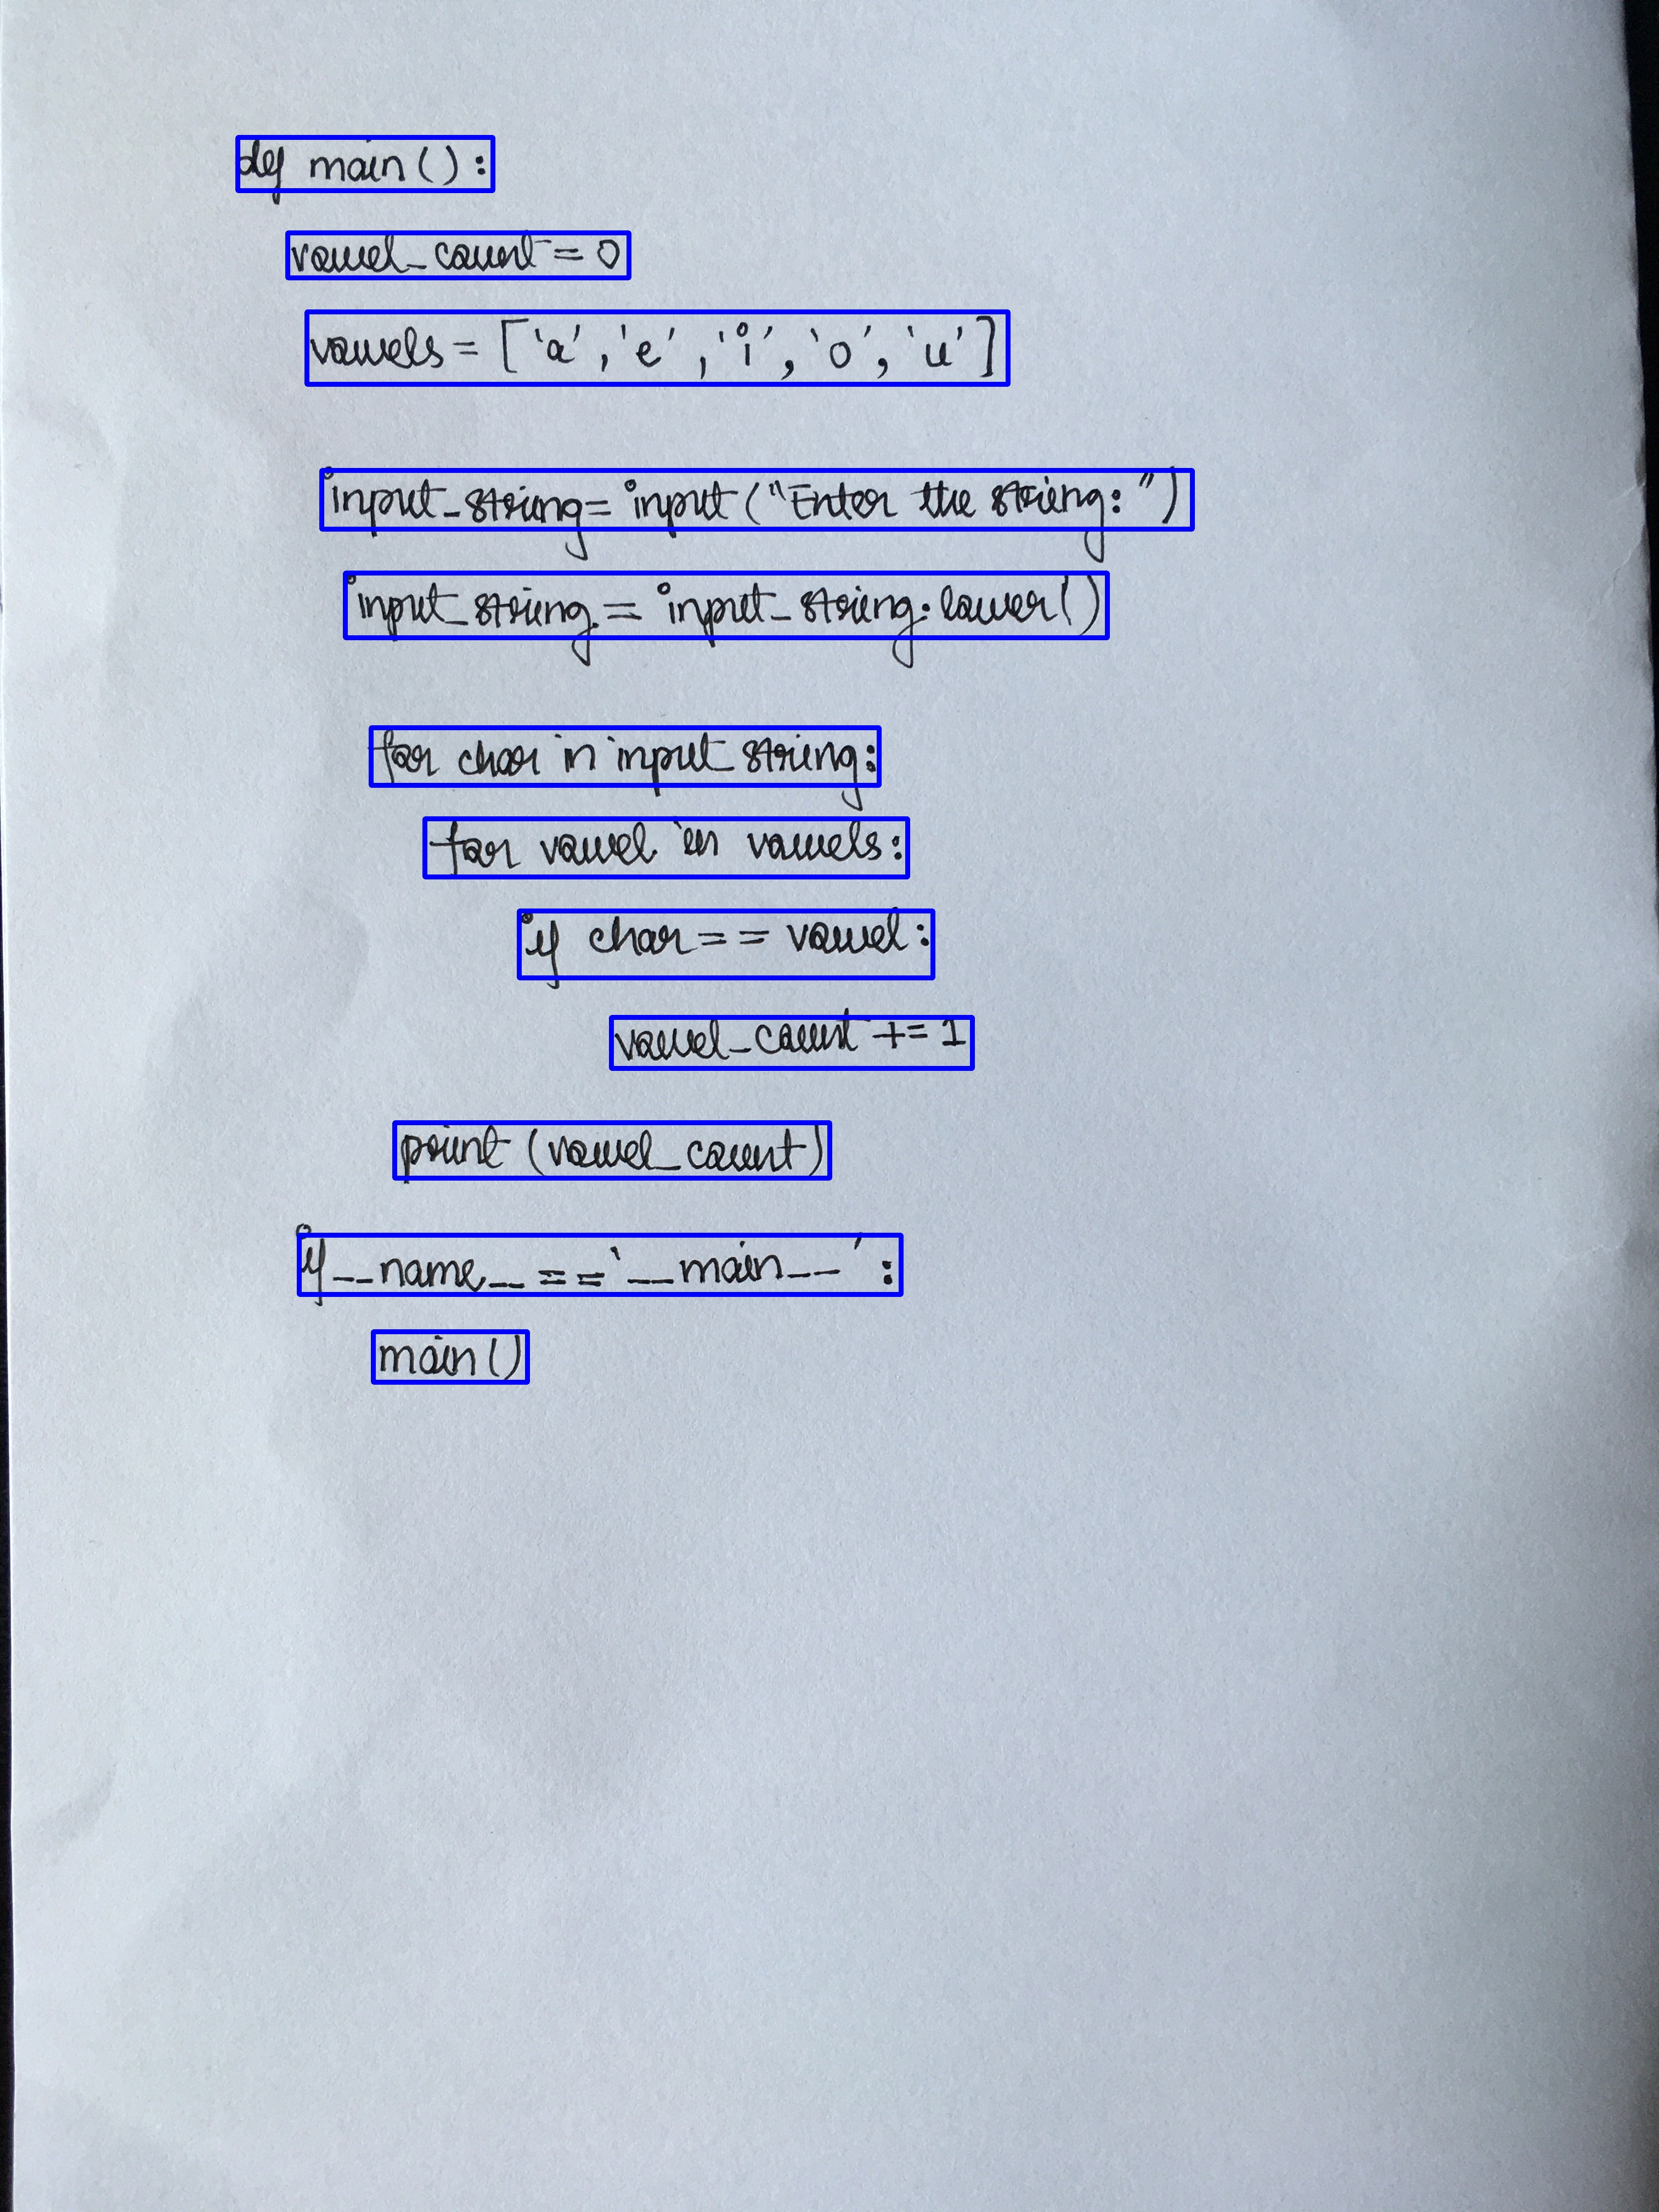 def main():
vowel_count = 0
vowels = ['a', 'e', 'i', 'o', 'u']
input_string = input("Enter the string:")
input_string = input_string.lower()
for char in input_string:
for vowel in vowels:
if char == vowel:
vowel_count += 1
print(vowel_count)
if __name__ == '__main__':
main()